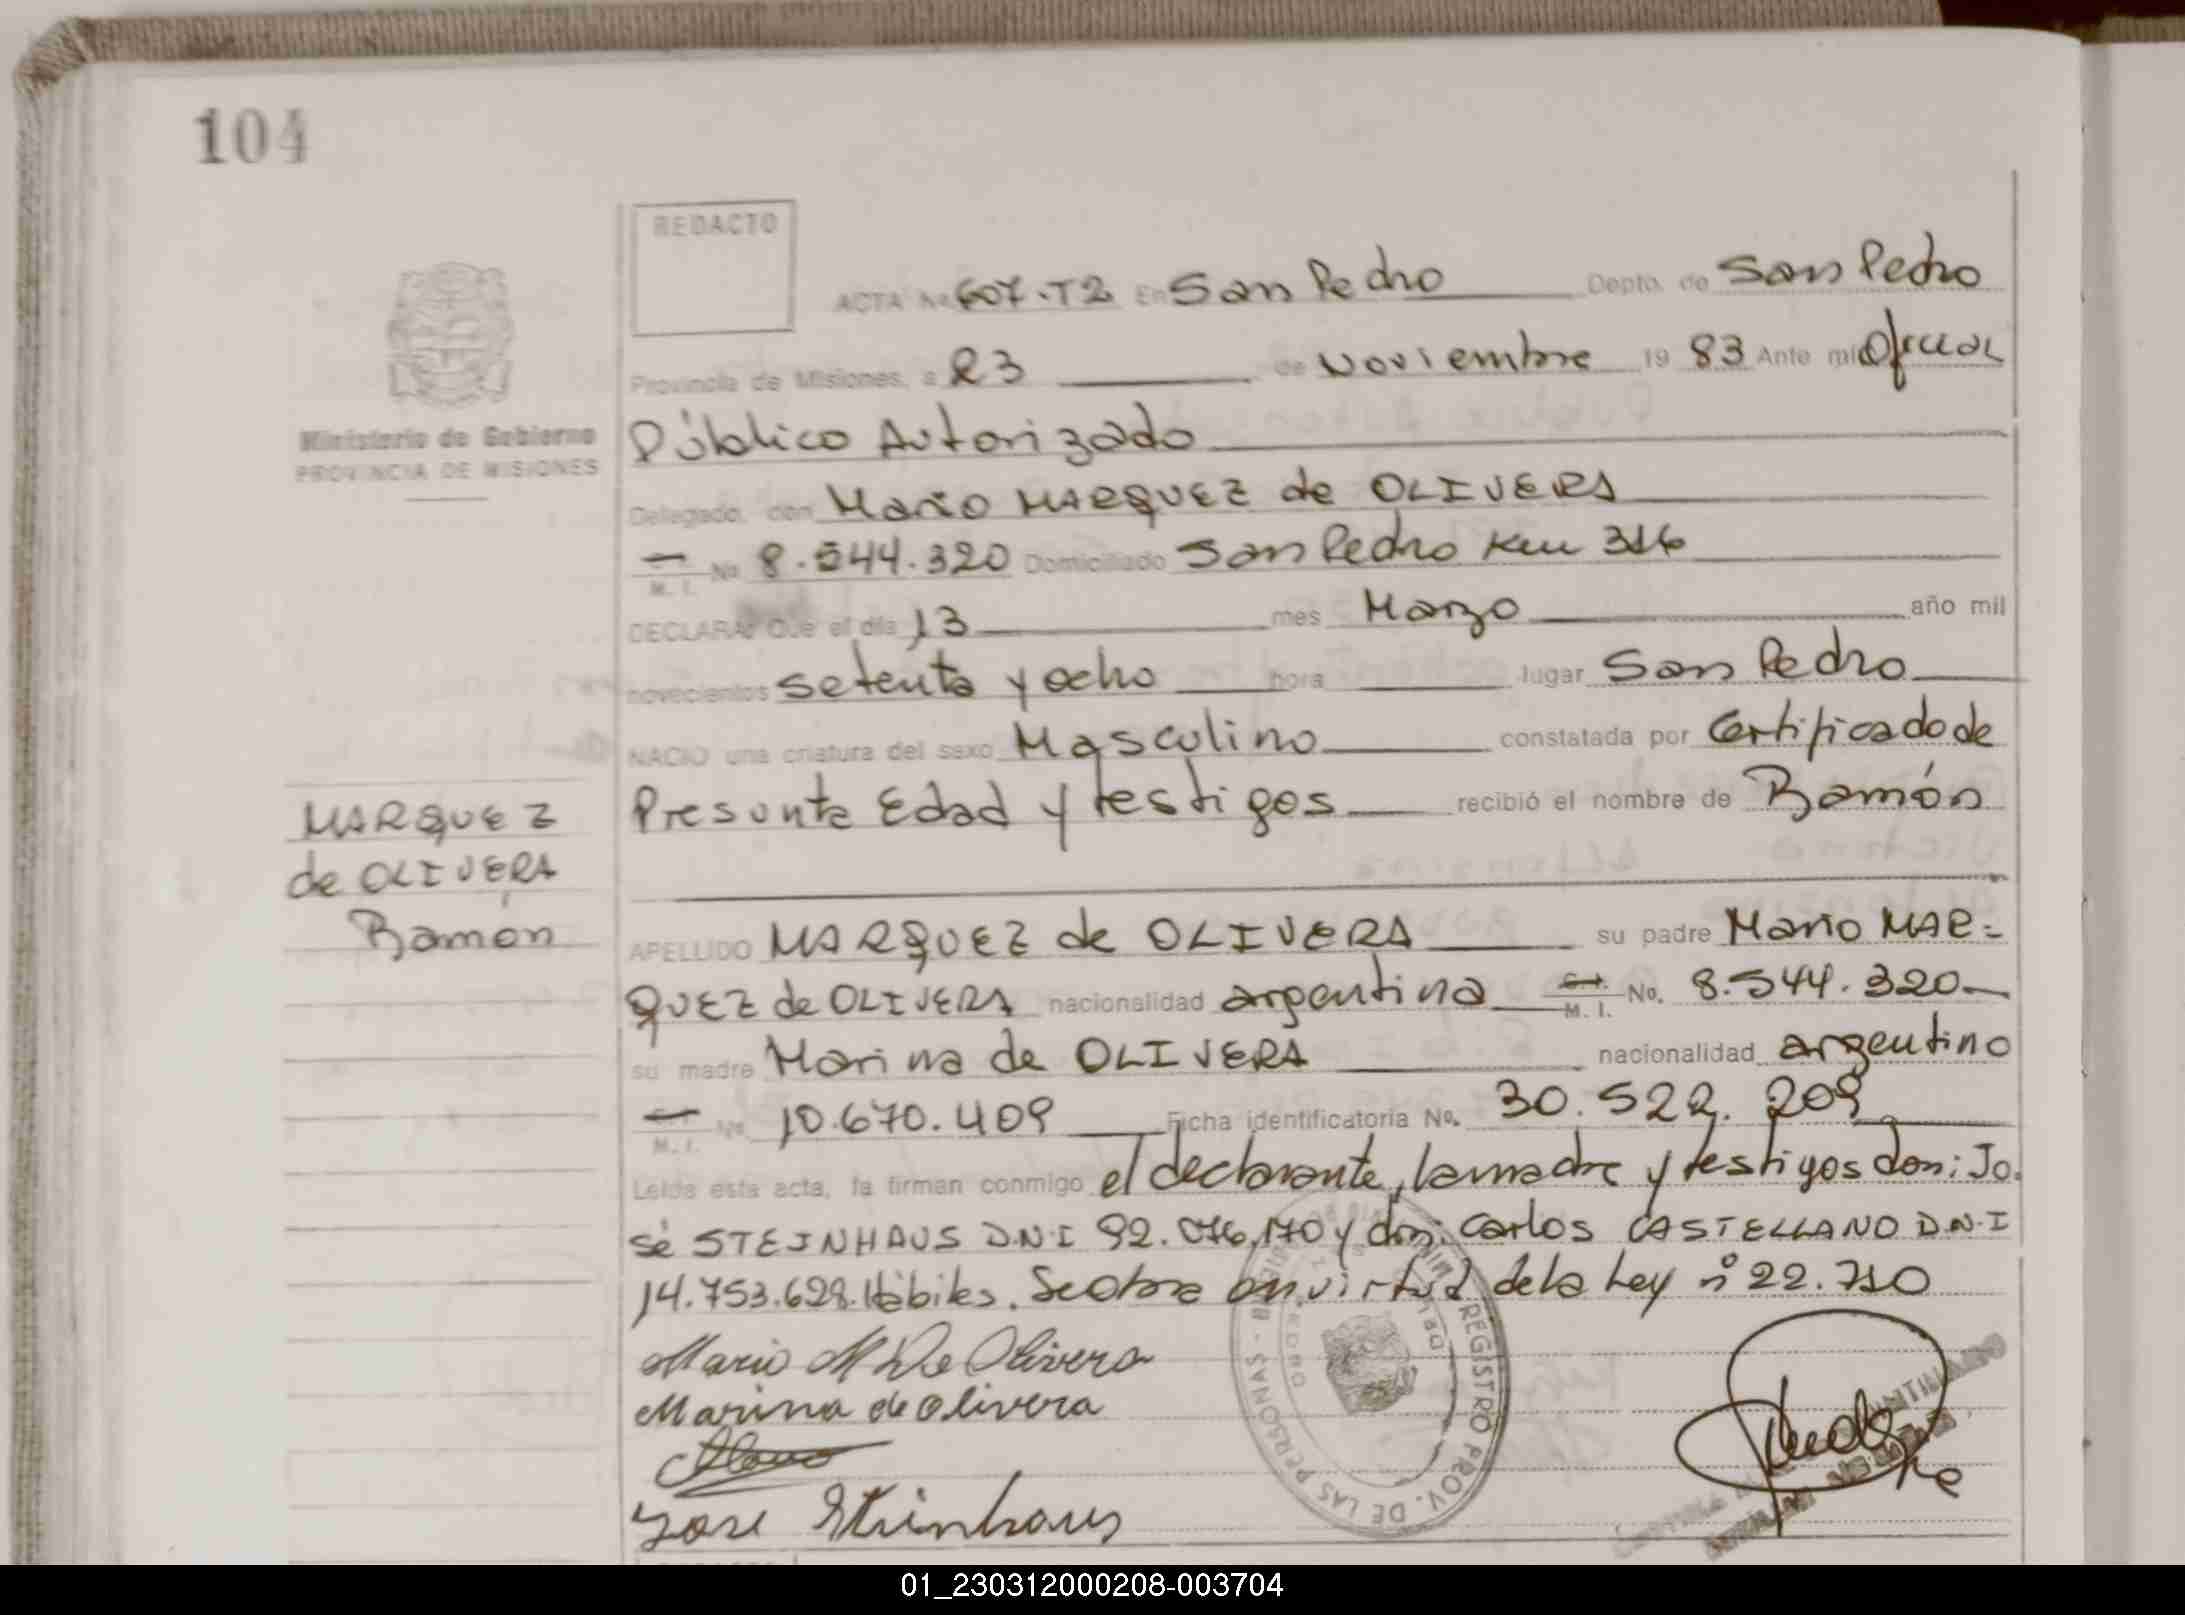 104
REDACTO
ACTA No 607.T2 En San Pedro Depto. de San Pedro
Provincia de Misiones, a 23 de Noviembre 19 83 Ante mí Oficial
Ministerio de Gobierno
PROVINCIA DE MISIONES
Público Autorizado
Delegado, don Mario MARQUEZ de OLIVERA
M. I. No 8.544.320 Domiciliado San Pedro Km 316
DECLARA: Que el día 13 mes Marzo año mil
novecientos setenta y ocho hora lugar San Pedro
NACIO una criatura del sexo Masculino constatada por Certificado de
Presunta Edad y testigos recibió el nombre de Ramón
MARQUEZ
de OLIVERA
Ramón
APELLIDO MARQUEZ de OLIVERA su padre Mario MAR=
QUEZ de OLIVERA nacionalidad argentina M. I. No. 8.544.320
su madre Marina de OLIVERA nacionalidad argentino
M. I. No 10.670.409 Ficha identificatoria No. 30.522.209
Leída esta acta, la firman conmigo el declarante, la madre y testigos don: Jo.
sé STEINHAUS D.N.I 92.076.170 y don: Carlos CASTELLANO D.N.I
14.753.628. Hábiles. Se labra en virtud de la Ley nº 22.710
Mario M De Olivera
Marina de Olivera
Jose Steinhaus
REGISTRO PROV. DE LAS PERSONAS
01_230312000208-003704